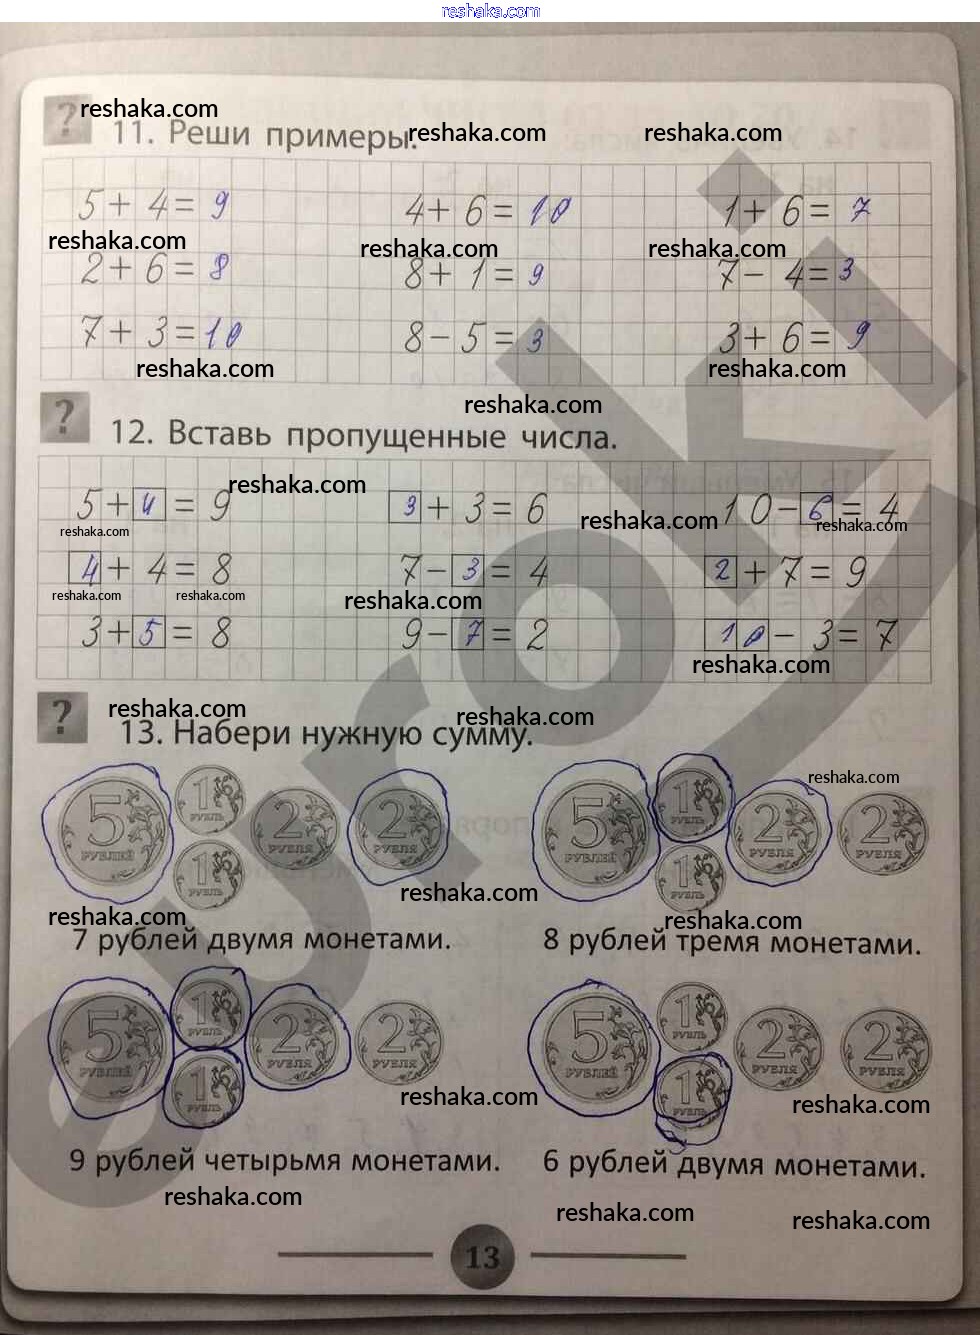 reshaka.com
reshaka.com
? 11. Реши примеры.
reshaka.com reshaka.com
5 + 4 = 9 4 + 6 = 10 1 + 6 = 7
reshaka.com reshaka.com reshaka.com
2 + 6 = 8 8 + 1 = 9 7 - 4 = 3
7 + 3 = 10 8 - 5 = 3 3 + 6 = 9
reshaka.com reshaka.com
reshaka.com
? 12. Вставь пропущенные числа.
reshaka.com
5 + 4 = 9 3 + 3 = 6 10 - 6 = 4
reshaka.com reshaka.com reshaka.com
4 + 4 = 8 7 - 3 = 4 2 + 7 = 9
reshaka.com reshaka.com reshaka.com
3 + 5 = 8 9 - 7 = 2 10 - 3 = 7
reshaka.com
reshaka.com reshaka.com
? 13. Набери нужную сумму.
reshaka.com
5 РУБЛЕЙ 1 РУБЛЬ 1 РУБЛЬ 2 РУБЛЯ 2 РУБЛЯ
5 РУБЛЕЙ 1 РУБЛЬ 1 РУБЛЬ 2 РУБЛЯ 2 РУБЛЯ
reshaka.com
reshaka.com reshaka.com
7 рублей двумя монетами. 8 рублей тремя монетами.
5 РУБЛЕЙ 1 РУБЛЬ 1 РУБЛЬ 2 РУБЛЯ 2 РУБЛЯ
5 РУБЛЕЙ 1 РУБЛЬ 1 РУБЛЬ 2 РУБЛЯ 2 РУБЛЯ
reshaka.com reshaka.com
9 рублей четырьмя монетами. 6 рублей двумя монетами.
reshaka.com reshaka.com reshaka.com
13
euroki